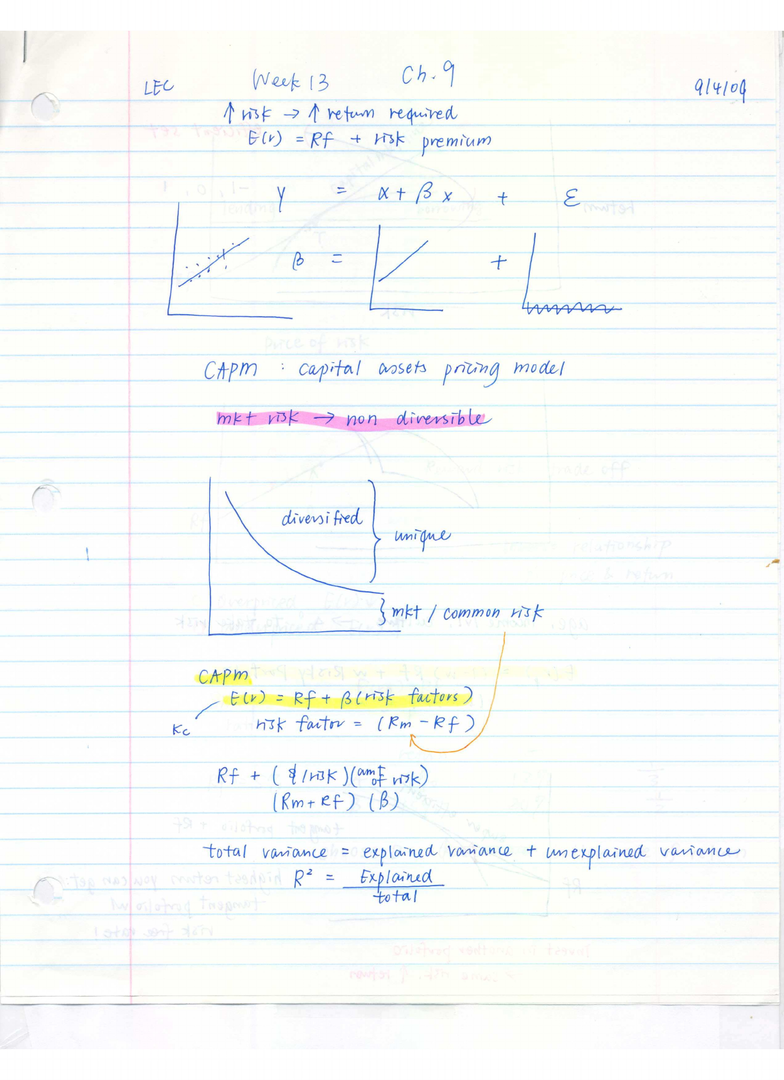 LEC Week 13 Ch. 9 9/4/09
↑ risk → ↑ return required
E(r) = Rf + risk premium
Y = α + β x + ε
β = +
CAPM : capital assets pricing model
mkt risk → non diversible
diversified
unique
mkt / common risk
CAPM
E(r) = Rf + β (risk factors)
Kc
risk factor = (Rm - Rf)
Rf + ($/risk)(amt of risk)
(Rm + Rf) (β)
total variance = explained variance + unexplained variance
R² = Explained
total